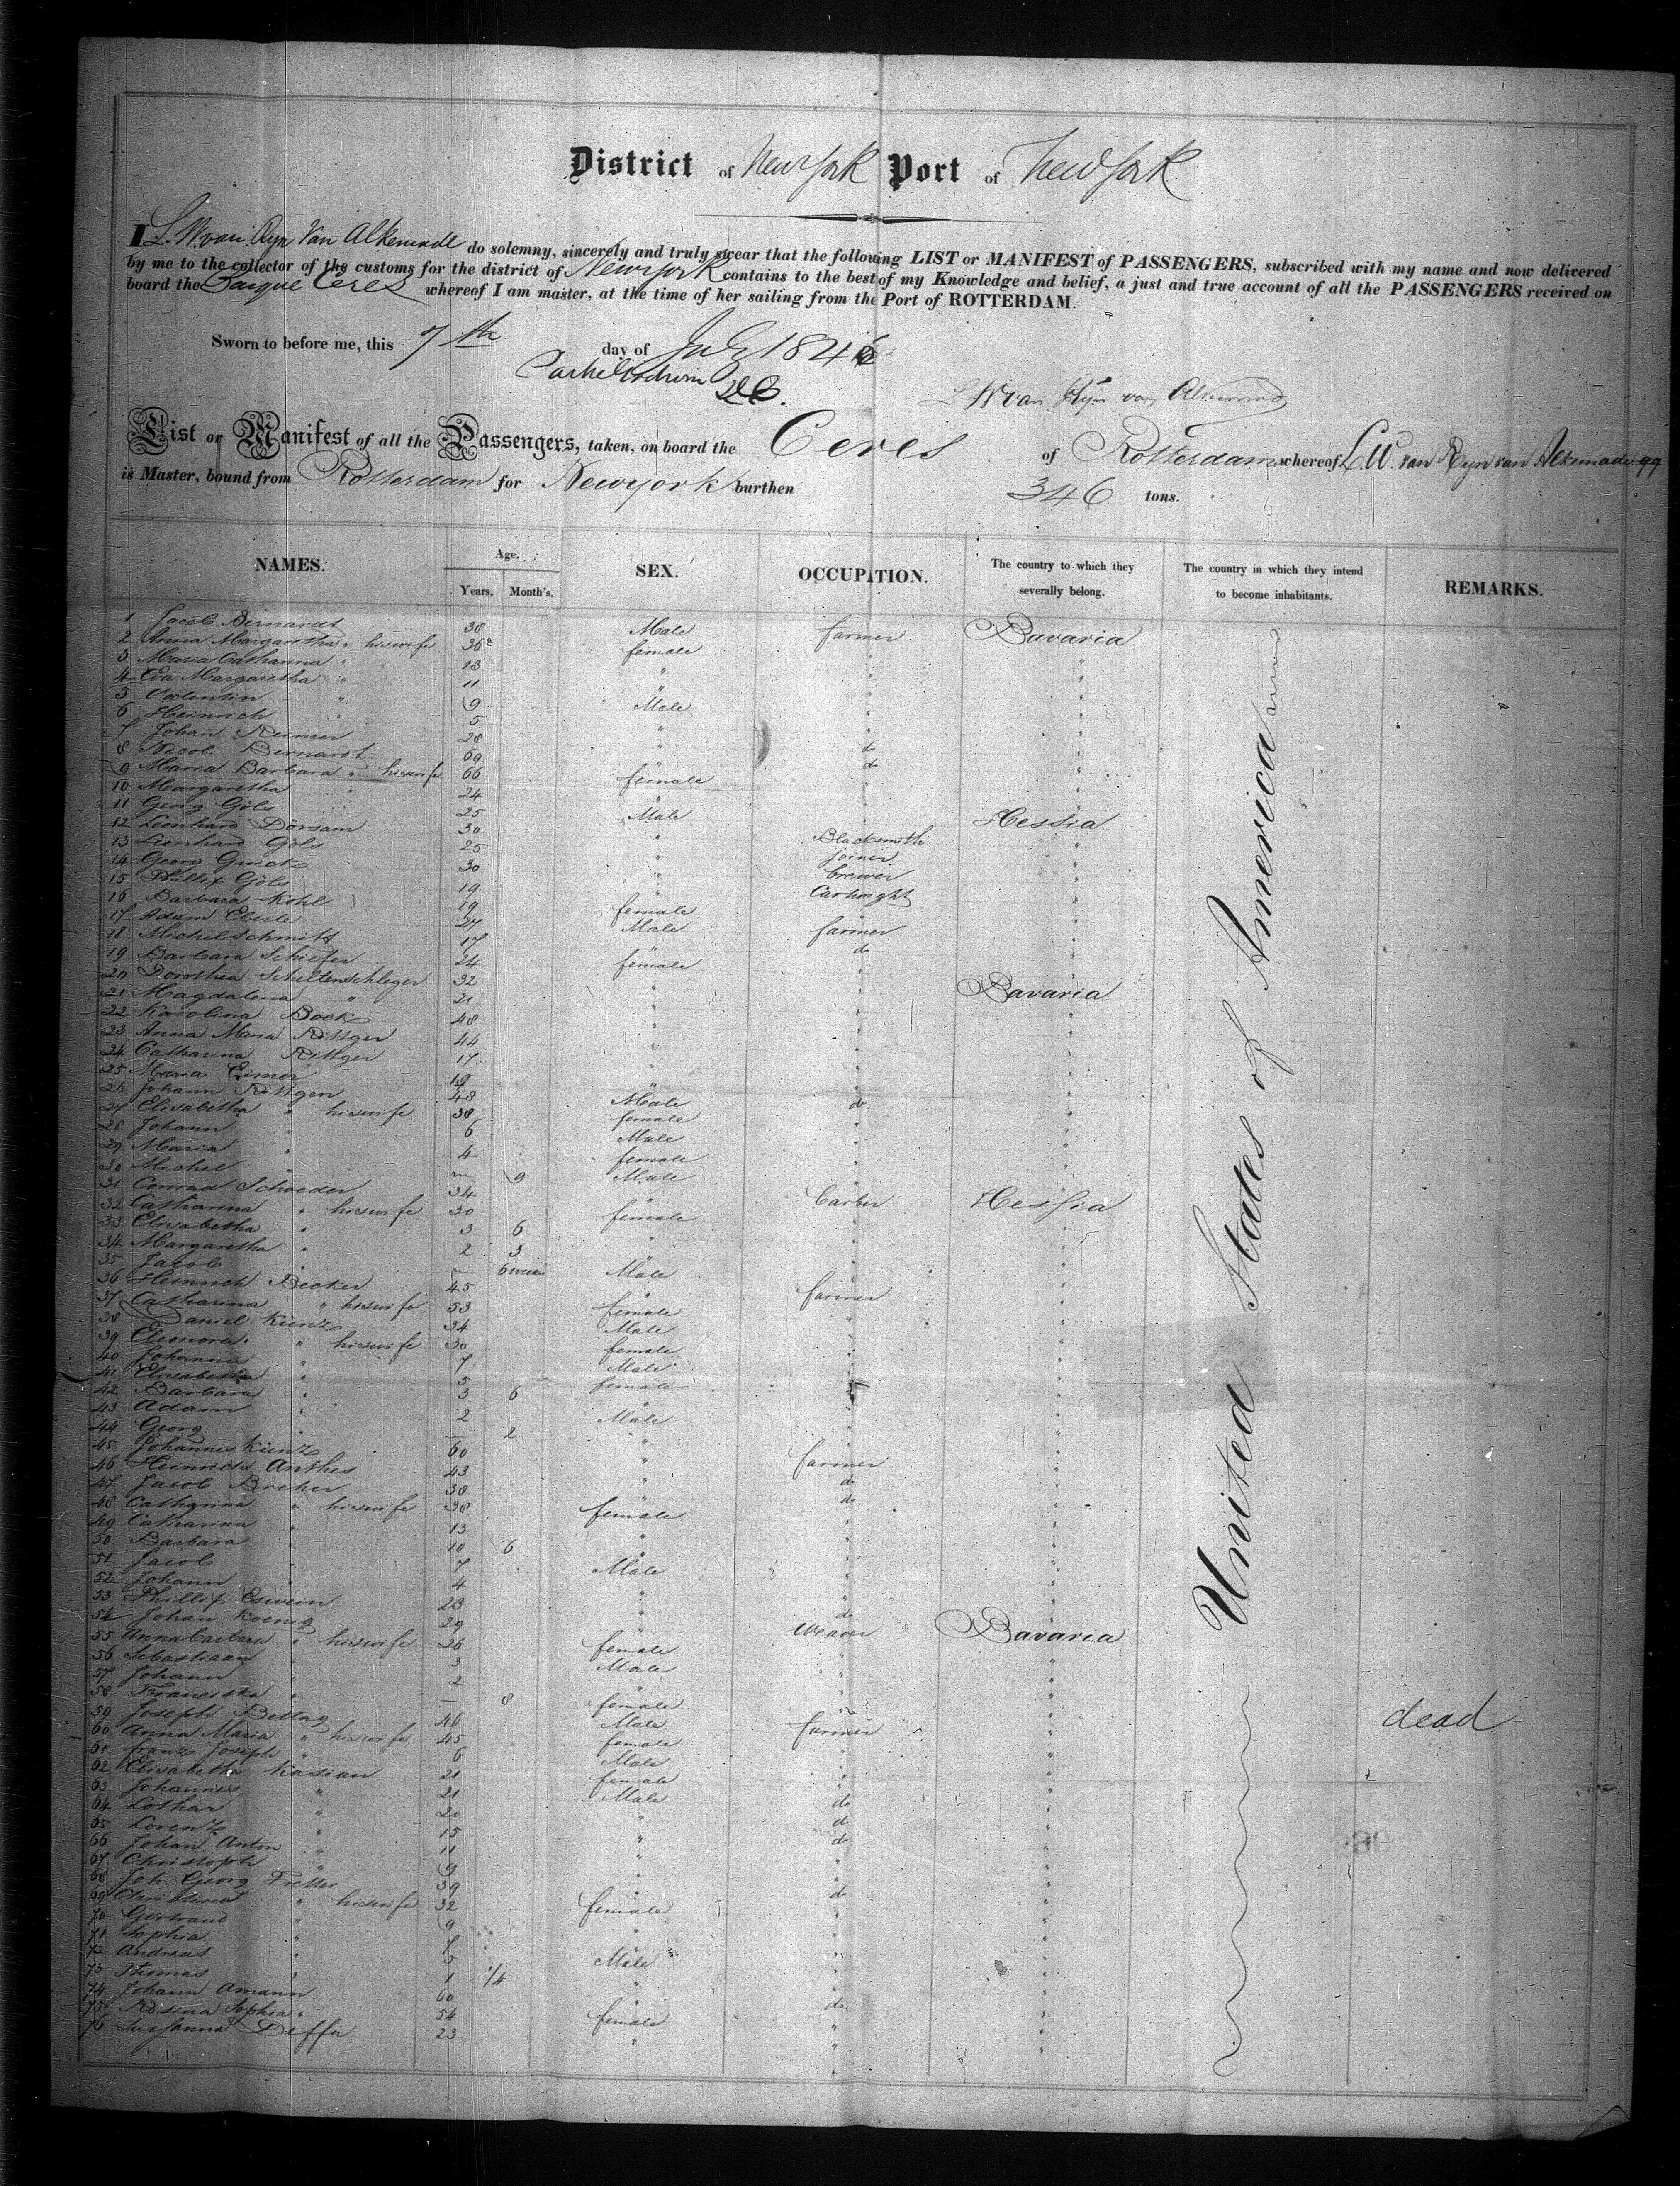 District of New York Port of New York
I L. W. van Ryn Van Alkemade do solemny, sincerely and truly swear that the following LIST or MANIFEST of PASSENGERS, subscribed with my name and now delivered
by me to the collector of the customs for the district of Newyork contains to the best of my Knowledge and belief, a just and true account of all the PASSENGERS received on
board the Barque Ceres whereof I am master, at the time of her sailing from the Port of ROTTERDAM.
Sworn to before me, this 7th day of July 1846
L W van Ryn van Alkemade
List or Manifest of all the Passengers, taken, on board the Ceres of Rotterdam whereof L.W. van Ryn van Alkemade
is Master, bound from Rotterdam for Newyork burthen 346 tons.
NAMES. Age. Years. Month's. SEX. OCCUPATION. The country to which they severally belong. The country in which they intend to become inhabitants. REMARKS.
United States of America
1 Jacob Bernardt 38 Male farmer Bavaria
2 Anna Margaretha " his wife 36 female " "
3 Maria Catharina " 13 " " "
4 Eva Margaretha " 11 " " "
5 Valentin " 9 Male " "
6 Heinrich " 5 " " "
7 Johan Reimer 28 " do "
8 Nicol. Bernardt 69 " do "
9 Maria Barbara " his wife 66 female " "
10 Margaretha " 24 " " "
11 Georg Göls 25 Male " Hessia
12 Leonhard Dörsam 30 " Blacksmith "
13 Leonhard Göls 25 " joiner "
14 Georg 30 " brewer "
15 Phillip Göls 19 " Cartwright "
16 Barbara Kohl 19 female "
17 Adam Eberle 27 Male farmer "
18 Michel Schmitt 17 " do "
19 Barbara Schiefer 24 female " "
20 Dorothea Scheltenschleger 32 " " Bavaria
21 Magdalena " 21 " " "
22 Karolina Bock 48 " " "
23 Anna Maria Rittger 44 " " "
24 Catharina Rittger 17 " " "
25 Maria Eimer 19 " " "
26 Johann Rittgen 48 Male do "
27 Elisabetha " his wife 38 female " "
28 Johann " 6 Male " "
29 Maria " 4 female " "
30 Michel " 9 Male " "
31 Conrad Schroeder 34 " Barber Hessia
32 Catharina " his wife 30 female " "
33 Elisabetha " 3 6 " " "
34 Margaretha " 2 3 " " "
35 Jacob " 6 weeks Male " "
36 Heinrich Becker 45 " farmer "
37 Catharina " his wife 53 female " "
38 Daniel Kunz 34 Male " "
39 Eleonora " his wife 30 female " "
40 Johannes " 7 Male " "
41 Elisabetha " 5 female " "
42 Barbara " 3 6 " " "
43 Adam " 2 Male " "
44 Georg " 2 " " "
45 Johannes Kunz 60 " farmer "
46 Heinrich Anthes 43 " do "
47 Jacob Breher 38 " do "
48 Catharina " his wife 38 female " "
49 Catharina " 13 " " "
50 Barbara " 10 6 " " "
51 Jacob " 7 Male " "
52 Johann " 4 " " "
53 Phillip Eswein 23 " do "
54 Johan Koenig 29 " Weaver Bavaria
55 Anna Barbara " his wife 26 female " "
56 Sebastiaan " 3 Male " "
57 Johann " 2 " " "
58 Franciska " 8 female " " dead
59 Joseph Bettag 46 Male farmer "
60 Anna Maria " his wife 45 female " "
61 Franz Joseph " 6 Male " "
62 Elisabetha Kasian 21 female " "
63 Johannes " 21 Male do "
64 Lothar " 20 " do "
65 Lorenz " 15 " do "
66 Johan Anton " 11 " " "
67 Christoph " 9 " " "
68 Joh. Georg 39 " do "
69 Christina " his wife 32 female " "
70 Gertraud " 9 " " "
71 Sophia " 7 " " "
72 Andreas " 5 Male " "
73 Thomas " 1 1/4 " " "
74 Johann Amann 60 " do "
75 Rosina Sophia " 54 female " "
76 Susanna Deffa 23 " " "